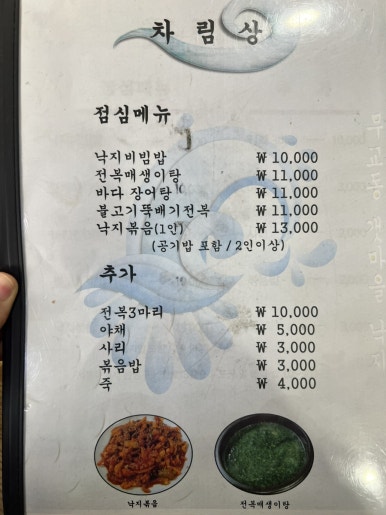 차림상
점심메뉴
낙지비빔밥 ₩ 10,000
전복매생이탕 ₩ 11,000
바다 장어탕 ₩ 11,000
불고기뚝배기전복 ₩ 11,000
낙지볶음(1인) ₩ 13,000
(공기밥 포함 / 2인이상)
추가
전복3마리 ₩ 10,000
야채 ₩ 5,000
사리 ₩ 3,000
볶음밥 ₩ 3,000
죽 ₩ 4,000
낙지볶음
전복매생이탕